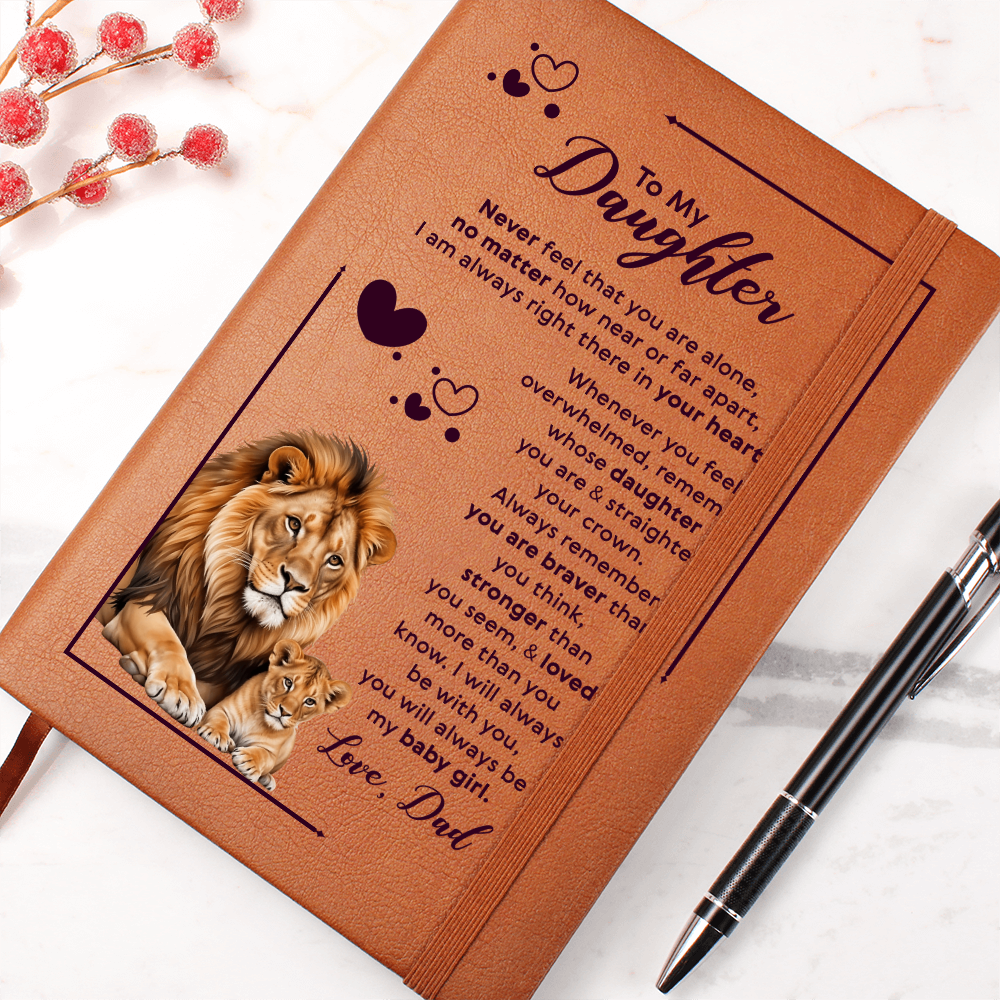 To My
Daughter
Never feel that you are alone,
no matter how near or far apart,
I am always right there in your heart
Whenever you feel
overwhelmed, remem
whose daughter
you are & straighte
your crown.
Always remember
you are braver than
you think,
stronger than
you seem, & loved
more than you
know. I will always
be with you,
you will always be
my baby girl.
Love, Dad